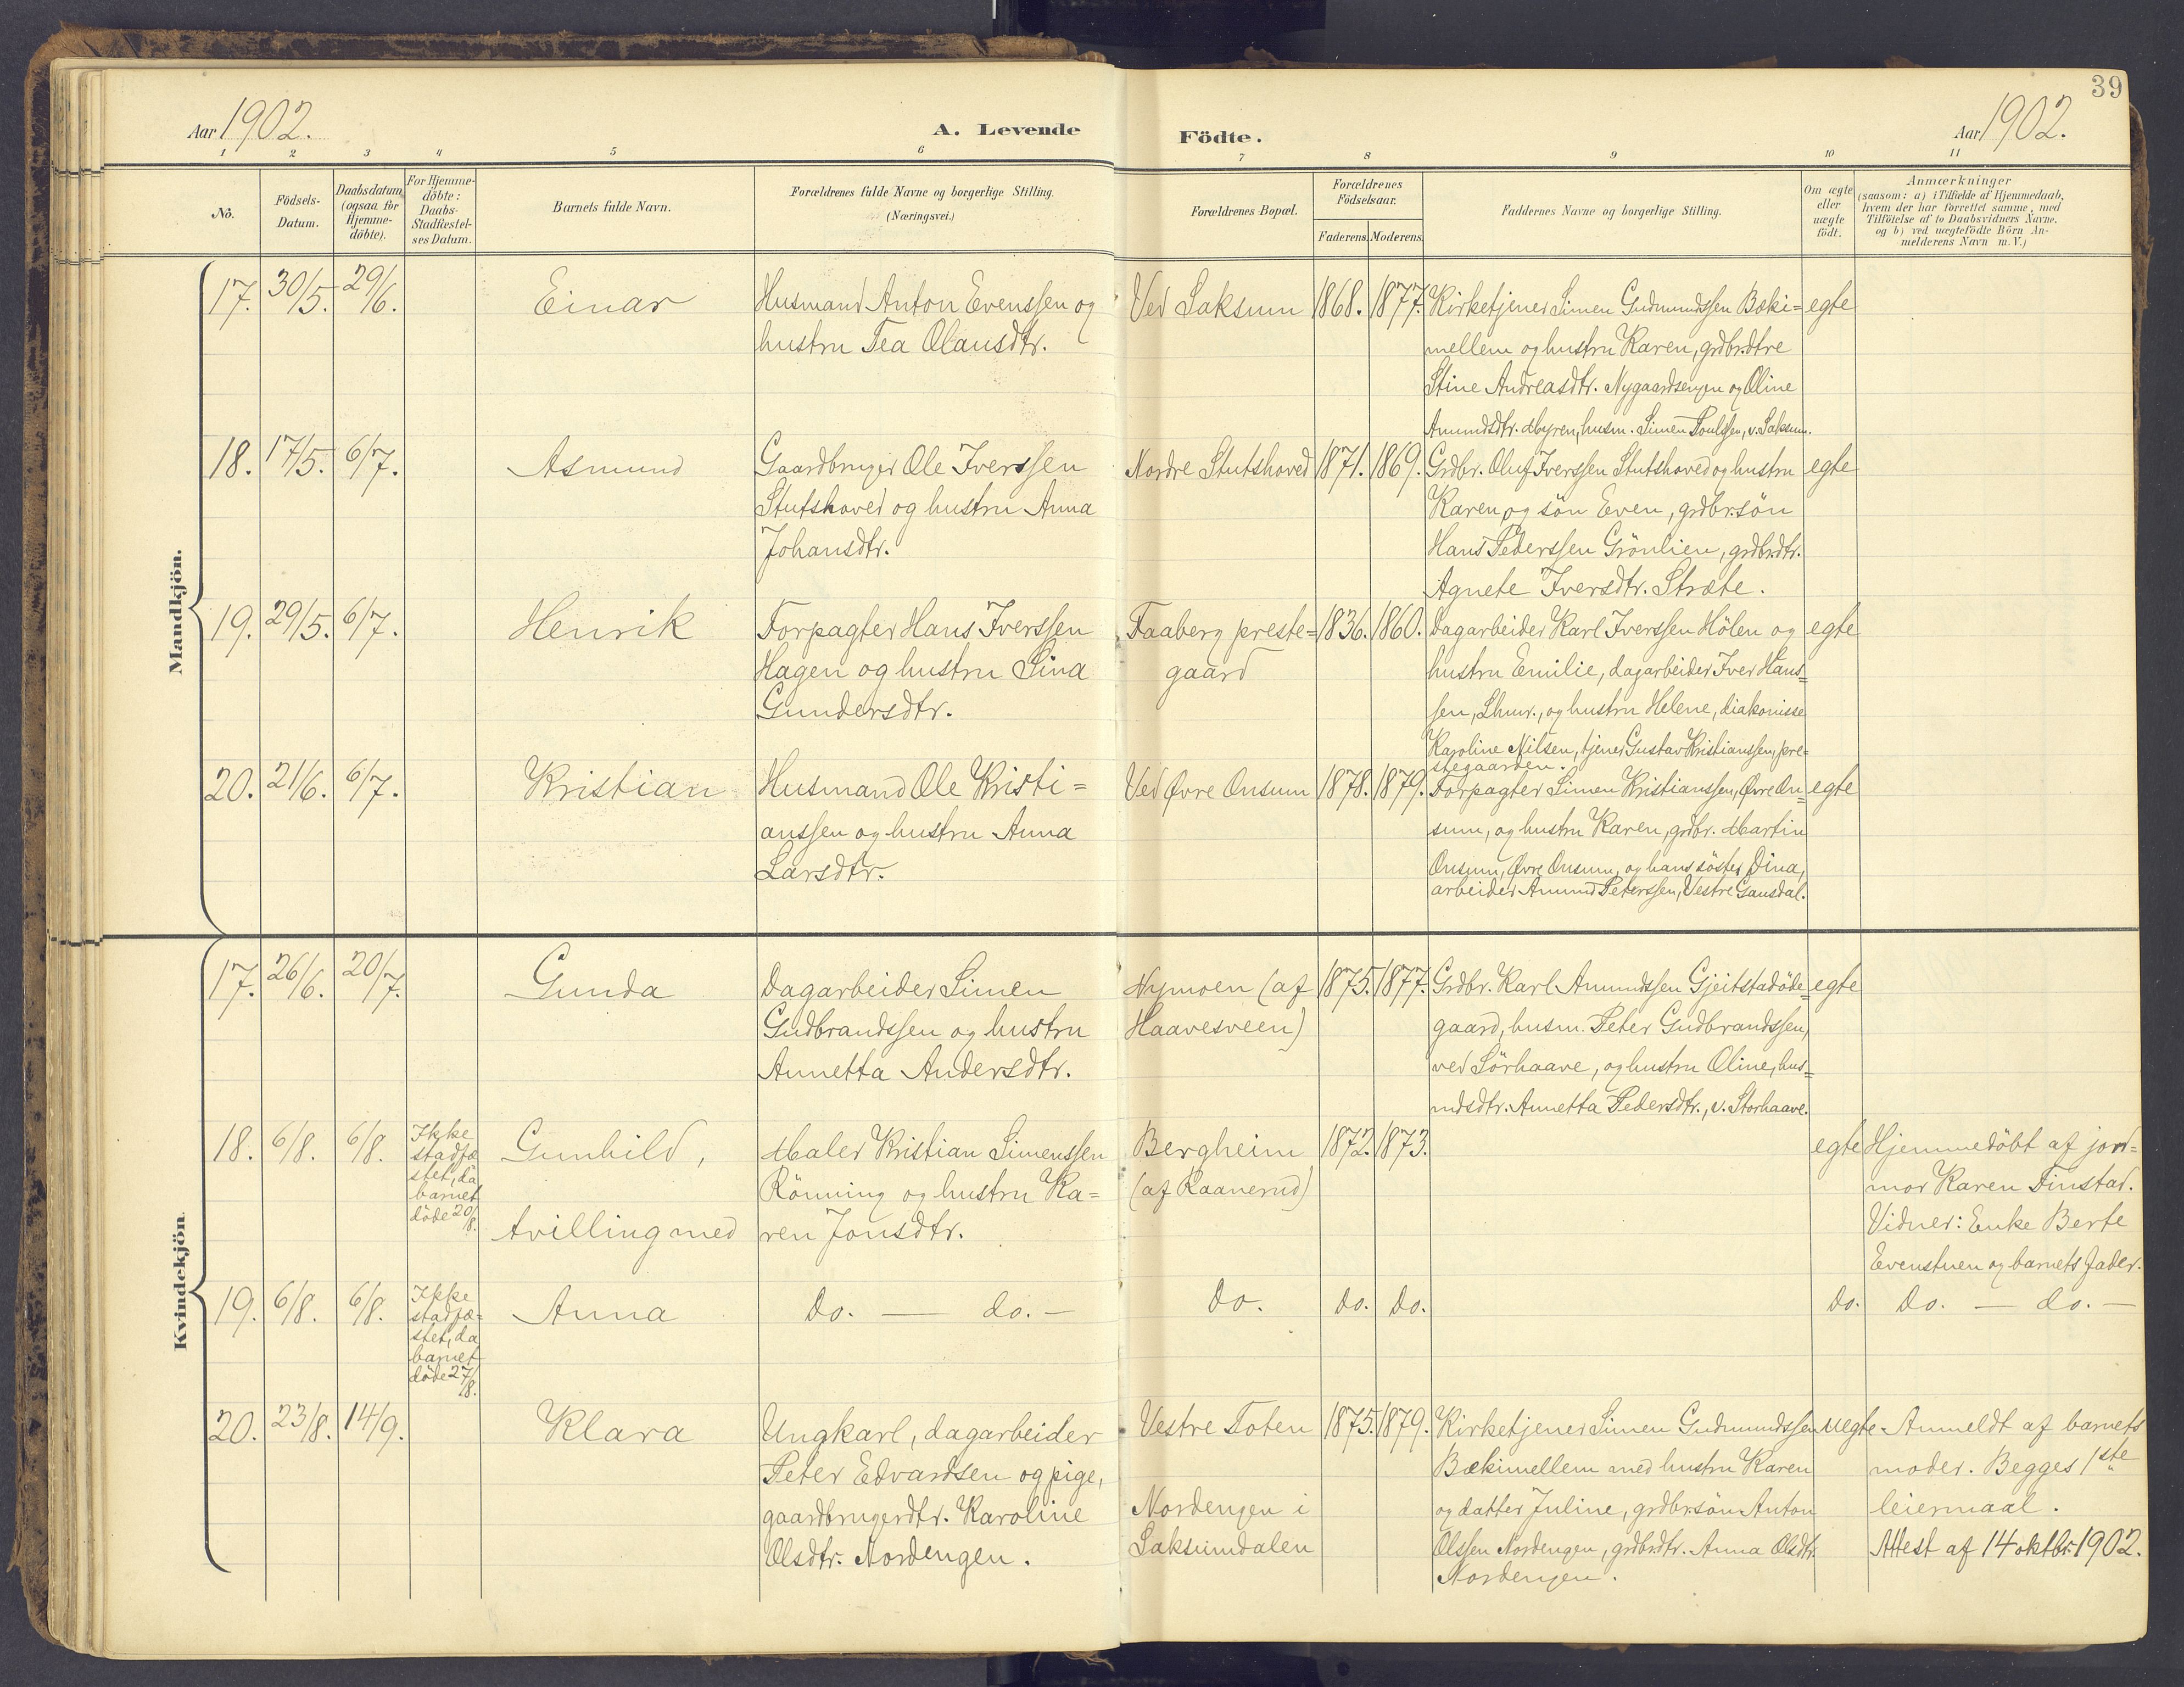 39
Aar 1902.
A. Levende Födte.
Aar 1902.
1 2 3 4 5 6 7 8 9 10 11
No.
Födsels-
Datum.
Daabsdatum
(ogsaa for
Hjemme-
döbte).
For Hjemme-
döbte:
Daabs-
Stadfæstel-
ses Datum.
Barnets fulde Navn.
Forældrenes fulde Navne og borgerlige Stilling.
(Næringsvei.)
Forældrenes Bopæl.
Forældrenes
Födselsaar.
Faderens. Moderens.
Faddernes Navne og borgerlige Stilling.
Om ægte
eller
uægte
födt.
Anmærkninger
(saasom: a) i Tilfælde af Hjemmedaab,
hvem der har forrettet samme, med
Tilföielse af to Daabsvidners Navne.
og b) ved uægtefödte Börn An-
melderens Navn m.V.)
Mandkjön.
17. 30/5. 29/6.
Einar
Husmand Anton Evenssen og
hustru Tea Olausdtr.
Ved Saksum
1868. 1877.
Kirketjener Simen Gudmundssen Bæki=
mellem og hustru Karen, grdbr.dtre
Stine Andreasdtr. Nygaardsengen og Oline
Amundsdtr. Myren, husm. Simen Poulssen, v. Saksum.
egte
18. 17/5. 6/7.
Asmund
Gaardbruger Ole Iverssen
Stutshoved og hustru Anna
Johansdtr.
Nordre Stutshoved
1871. 1869.
Grdbr. Oluf Iverssen Stutshoved og hustru
Karen og sön Even, grdbr.sön
Hans Pederssen Grönlien, grdbr.dtr.
Agnete Iversdtr. Stræte.
egte
19. 29/5. 6/7.
Henrik
Forpagter Hans Iverssen
Hagen og hustru Sina
Gundersdtr.
Faaberg preste=
gaard
1836. 1860.
Dagarbeider Karl Iverssen Hölen og
hustru Emilie, dagarbeider Iver Hans=
sen, Lhmr., og hustru Helene, diakonisse
Karoline Nilsen, tjener Gustav Kristianssen, pre=
stegaarden.
egte
20. 21/6. 6/7.
Kristian
Husmand Ole Kristi=
anssen og hustru Anna
Larsdtr.
Ved Øvre Onsum
1878. 1879.
Forpagter Simen Kristianssen, Øvre On=
sum, og hustru Karen, grdbr. Martin
Onsum, Øvre Onsum, og hans söster Dina,
arbeider Amund Peterssen, Vestre Gausdal.
egte
Kvindekjön.
17. 26/6. 20/7.
Gunda
Dagarbeider Simen
Gudbrandssen og hustru
Annetta Andersdtr.
Nymoen (af
Haavesveen)
1875. 1877.
Grdbr. Karl Amundssen Gjeitstadöde=
gaard, husm. Peter Gudbrandssen,
ved Sörhaave, og hustru Oline, hus=
mdsdtr. Annetta Pedersdtr., v. Storhaave.
egte
18. 6/8. 6/8.
Ikke
stadfæ
stet, da
barnet
döde 20/8.
Gunhild,
tvilling med
Maler Kristian Simenssen
Rönning og hustru Ka=
ren Jonsdtr.
Bergheim
(af Raanerud)
1872. 1873.
egte
Hjemmedöbt af jord=
mor Karen Finstad.
Vidner: Enke Berte
Evenstuen og barnets fader.
19. 6/8. 6/8.
Ikke
stadfæ=
stet, da
barnet
döde 27/8.
Anna
do. — do. —
do.
do. do.
do.
do. — do. —
20. 23/8. 14/9.
Klara
Ungkarl, dagarbeider
Peter Edvardsen og pige,
gaardbrugerdtr. Karoline
Olsdtr. Nordengen.
Vestre Toten
Nordengen i
Saksumdalen
1875. 1879.
Kirketjener Simen Gudmundssen
Bækimellem med hustru Karen
og datter Juline, grdbr.sön Anton
Olssen Nordengen, grdbr.dtr. Anna Olsdtr.
Nordengen.
uegte
Anmeldt af barnets
moder. Begges 1ste
leiermaal.
Attest af 14 oktbr. 1902.